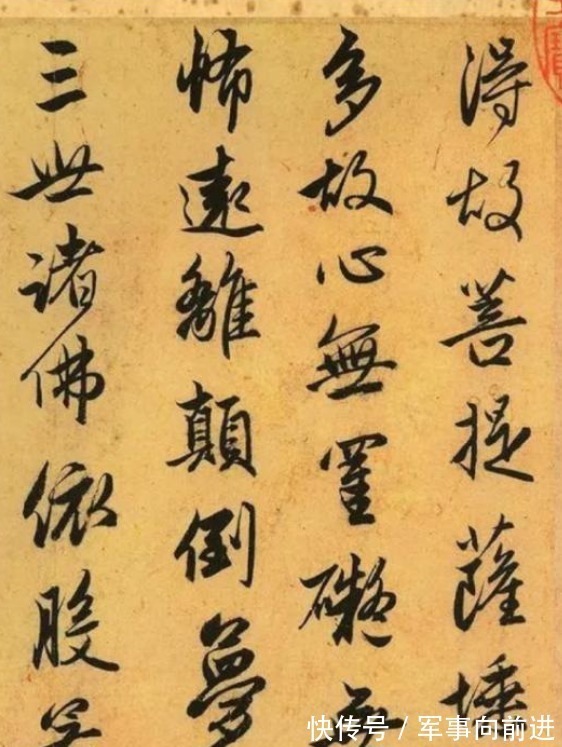 得故菩提薩埵
多故心無罣礙
怖遠離顛倒夢
三世諸佛依般
快传号 / 军事向前进